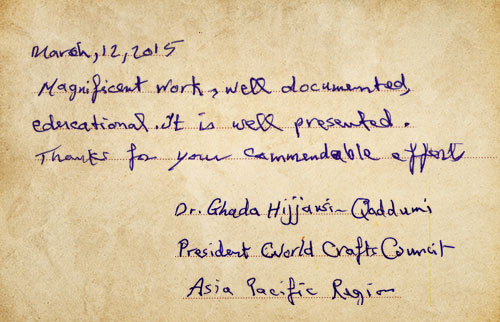 March, 12, 2015
Magnificent work, well documented,
educational. It is well presented.
Thanks for your commendable effort
Dr. Ghada Hijjawi-Qaddumi
President World Crafts Council
Asia Pacific Region